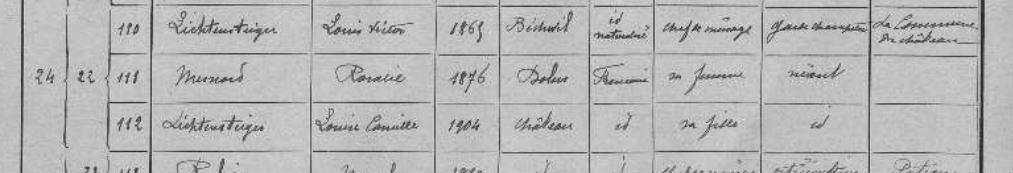 110 Lichtensteiger Louis Victor 1865 Bichwil id naturalisé chef de ménage garde champêtre La Commune du château
24 22 111 Mesnard Rosalie 1876 Dolus Française sa femme néant
112 Lichtensteiger Louise Camille 1904 château id sa fille id